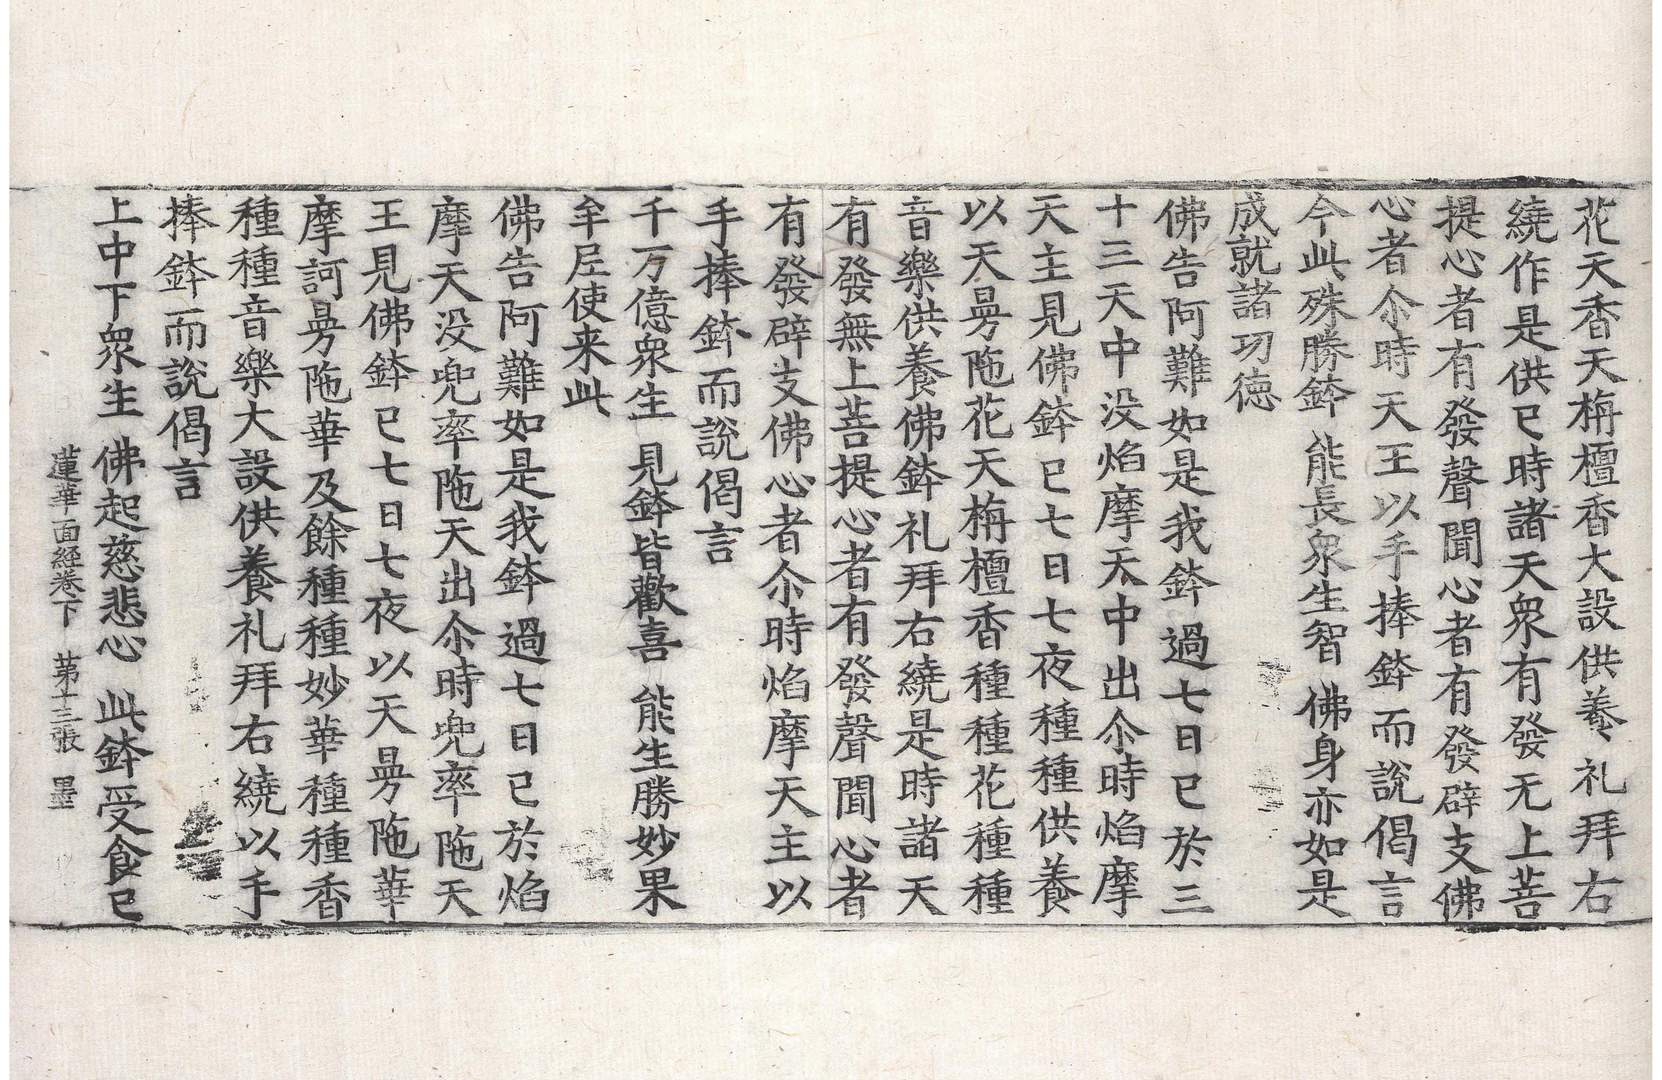 花天香天栴檀香大設供養礼拜右
繞作是供已時諸天衆有發无上菩
提心者有發聲聞心者有發辟支佛
心者尒時天王以手捧鉢而說偈言
今此殊勝鉢 能長衆生智 佛身亦如是
成就諸功德
佛告阿難如是我鉢過七日已於三
十三天中没焰摩天中出尒時焰摩
天主見佛鉢已七日七夜種種供養
以天曼陁花天栴檀香種種花種種
音樂供養佛鉢礼拜右繞是時諸天
有發無上菩提心者有發聲聞心者
有發辟支佛心者尒時焰摩天主以
手捧鉢而說偈言
千万億衆生 見鉢皆歡喜 能生勝妙果
牟尼使来此
佛告阿難如是我鉢過七日已於焰
摩天没兜率陁天出尒時兜率陁天
王見佛鉢已七日七夜以天曼陁華
摩訶曼陁華及餘種種妙華種種香
種種音樂大設供養礼拜右繞以手
捧鉢而說偈言
上中下衆生 佛起慈悲心 此鉢受食已
蓮華面經卷下 第十三張 墨